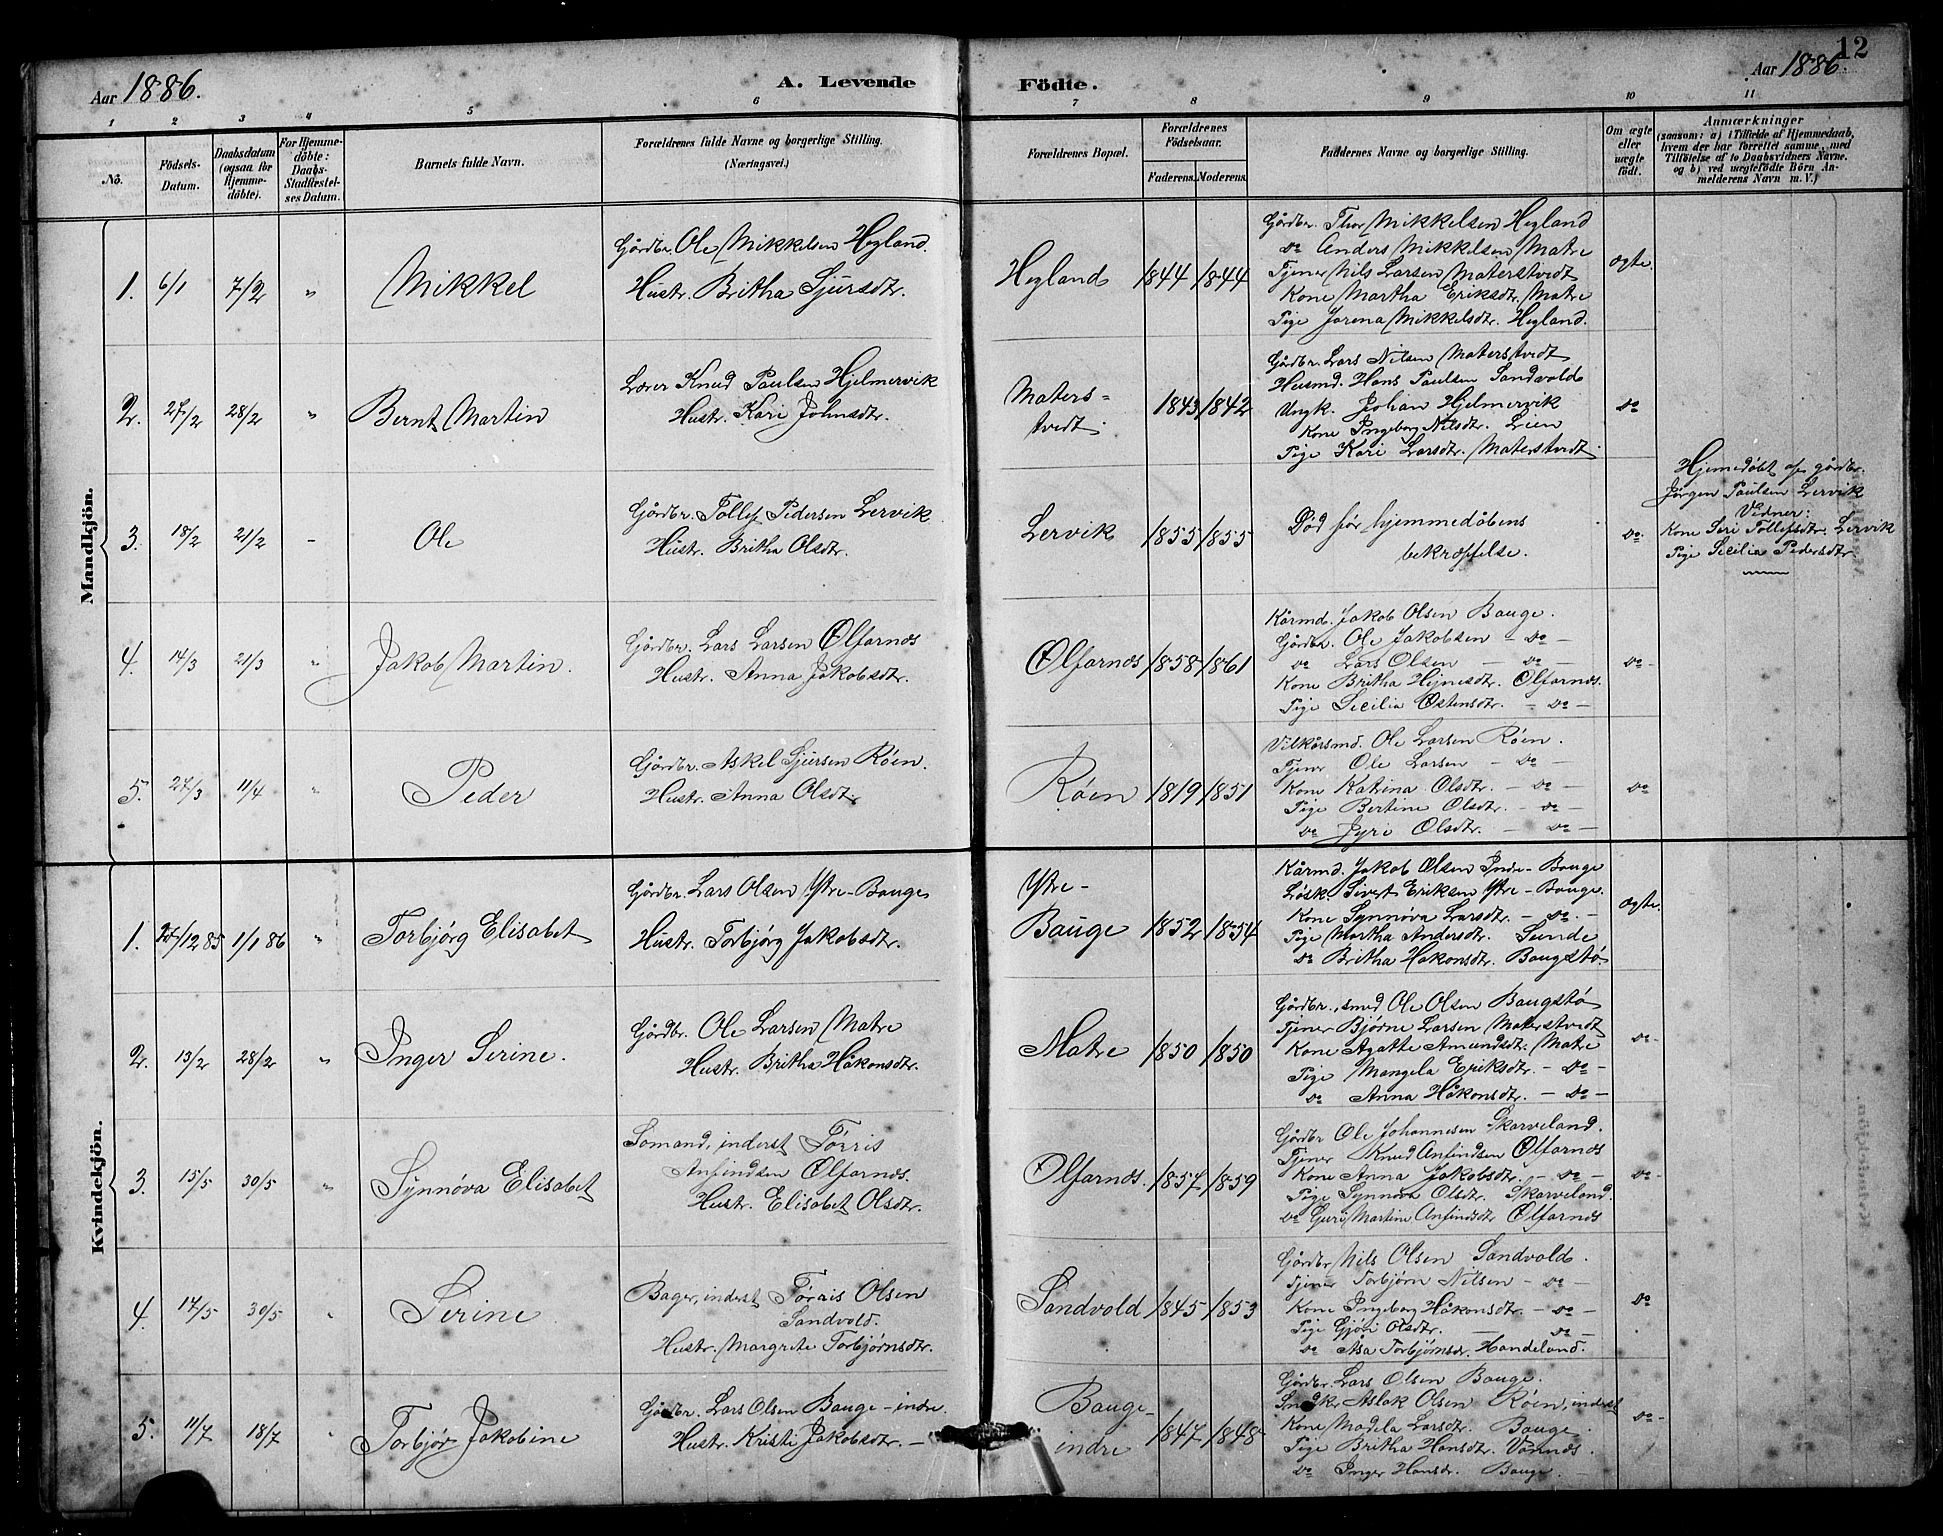 Aar 1886.
A. Levende Födte.
Aar 1886.
12
1 2 3 4 5 6 7 8 9 10 11
No.
Födsels-
Datum.
Daabsdatum
(ogsaa för
Hjemme-
döbte).
For Hjemme-
döbte:
Daabs-
Stadfæstel-
ses Datum.
Barnets fulde Navn.
Forældrenes fulde Navne og borgerlige Stilling.
(Næringsvei.)
Forældrenes Bopæl.
Forældrenes
Födselsaar.
Faderens. Moderens.
Faddernes Navne og borgerlige Stilling.
Om ægte
eller
uægte
födt.
Anmærkninger
(saasom: a) i Tilfælde af Hjemmedaab,
hvem der har forrettet samme, med
Tilföielse af to Daabsvidners Navne,
og b) ved uægtefödte Börn An-
melderens Navn m. V.)
Mandkjön.
1. 6/1 7/2 " Mikkel
Gårdbr. Ole Mikkelsen Hegland.
Hustr. Britha Sjursdtr.
Hegland 1844 1844
Gårdbr. Thor Mikkelsen Hegland
do Anders Mikkelsen Matre
Tjener Nils Larsen Materstvedt
Kone Martha Eriksdtr. Matre
Pige Jorena Mikkelsdtr. Hegland.
Ægte.
2. 27/2 28/2 " Bernt Martin
Lærer Knud Paulsen Hjelmervik
Hustr. Kari Johnsdtr.
Maters-
tvedt. 1843 1842
Gårdbr. Lars Nilsen Materstvedt
Husmd. Hans Paulsen Sandvold
Ungk. Johan Hjelmervik
Kone Ingeborg Nilsdtr. Lien
Pige Kari Larsdtr. Materstvedt.
do
3. 18/2 21/2 - Ole
Gårdbr. Tollef Pedersen Lervik
Hustr. Britha Olsdtr.
Lervik 1855 1855
Död før hjemmedåbens
bekræftelse.
do
Hjemedöbt af gårdbr.
Jörgen Paulsen Lervik
Vidner:
Kone Siri Tollefsdtr. Lervik
Pige Sicilia Pedersdtr.
4. 14/3 21/3 " Jakob Martin.
Gårdbr. Lars Larsen Ølfarnes
Hustr. Anna Jakobsdtr.
Ølfarnes 1858 1861
Kårmd. Jakob Olsen Bauge.
Gårdbr. Ole Jakobsen - do -
do Lars Olsen - do -
Kone Britha Hejnesdtr. Ølfarnes.
Pige Sicilia Østensdtr. - do -
do -
5. 27/3 11/4 " Peder
Gårdbr. Askel Sjursen Røen.
Hustr. Anna Olsdtr
Røen 1819 1851
Vilkårsmd. Ole Larsen Røen.
Tjener Ole Larsen - do -
Kone Katrina Olsdtr. - do -
Pige Bertine Olsdtr. - do -
do Jyri Olsdtr. - do -
do
Kvindekjön.
1. /12 85 1/1 86 " Torbjørg Elisabet
Gårdbr. Lars Olsen Ystre-Bauge
Hustr. Torbjørg Jakobsdtr.
Ystre-
Bauge 1852 1854
Kårmd. Jakob Olsen Indre-Bauge
Løsk. Sivert Eriksen Ystre-Bauge.
Kone Synnøva Larsdtr. - do -
Pige Martha Andersdtr. Sunde
do Britha Håkonsdtr. Baugstø.
Ægte.
2. 13/2 28/2 " Inger Serine.
Gårdbr. Ole Larsen Matre
Hustr. Britha Håkonsdtr.
Matre 1850 1850
Gårdbr., smed Ole Olsen Baugstø
Tjener Bjørne Larsen Materstvedt
Kone Agathe Amundsdtr. Matre
Pige Mangela Eriksdtr. - do -
do Anna Håkonsdtr. - do -
do -
3. 15/5 30/5 " Synnøva Elisabet
Sømand, inderst Tørris
Anfindsen Ølfarnes.
Hustr. Elisabet Olsdtr.
Ølfarnes. 1857 1859
Gårdbr Ole Johannesen Skarveland.
Tjener Knud Anfindsen Ølfarnes
Kone Anna Jakobsdtr. - do -
Pige Synnøva Olsdtr. Skarveland.
do Guri Martine Anfindsdtr Ølfarnes
do -
4. 17/5 30/5 " Serine
Bager, inderst Tørris Olsen
Sandvold.
Hustr. Margrete Torbjørnsdtr.
Sandvold 1845 1853
Gårdbr Nils Olsen Sandvold.
Tjener Torbjørn Nilsen - do -
Kone Ingeborg Håkonsdtr. - do -
Pige Gjøri Olsdtr. - do -
do Åsa Torbjørnsdr. Handeland.
do
5. 11/7 18/7 " Torbjør Jakobine
Gårdbr. Lars Olsen Bauge-indre.
Hustr. Kristi Jakobsdtr. -
Bauge-
indre 1847 1848
Gårdbr Lars Olsen Bauge.
Snedker Aslak Olsen Røen, inderst
Kone Madela Larsdtr. Bauge
Pige Britha Hansdtr. Vannes.
do Inger Hansdr. Bauge. -
do -